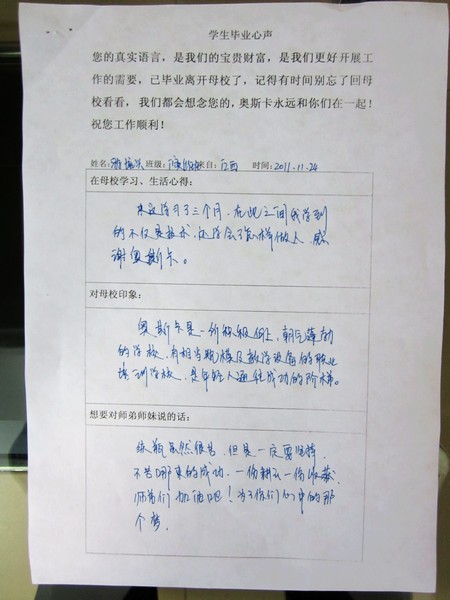 学生毕业心声
您的真实语言，是我们的宝贵财富，是我们更好开展工
作的需要，已毕业离开母校了，记得有时间别忘了回母
校看看，我们都会想念您的，奥斯卡永远和你们在一起！
祝您工作顺利！
姓名： 班级： 来自：江西 时间：2011.11.24
在母校学习、生活心得：
来这学习了三个月，在此之间我学到
的不仅是技术，还学会了怎样做人，感
谢奥斯卡。
对母校印象：
奥斯卡是一所积极向上，朝气蓬勃
的学校，有相当规模及教学设备的职业
培训学校，是年轻人通往成功的阶梯。
想要对师弟师妹说的话：
练瓶虽然很苦，但是一定要坚持，
不苦哪来的成功，一份耕耘一份收获，
师弟们加油吧！为了你们心中的那
个梦，